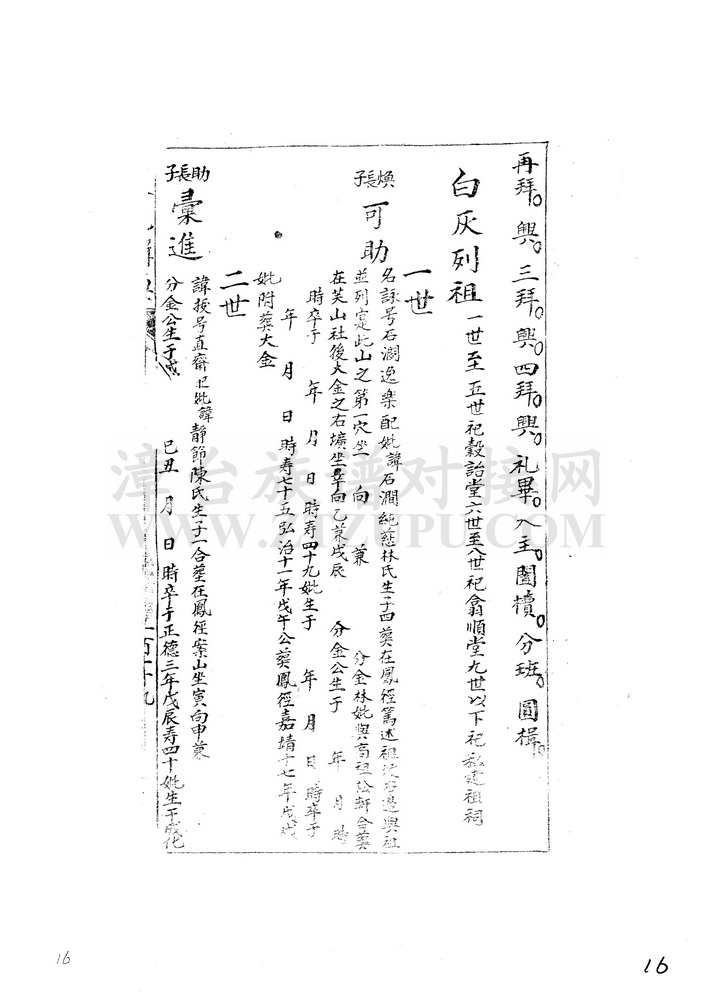 再拜。興。三拜。興。四拜。興。礼畢。入主。闔櫝。分班。圓楫。
白灰列祖 一世至五世祀穀詒堂六世至八世祀翕順堂九世以下祀私建祖祠
一世
煥長子 可助 名諒号石澗逸樂配妣諱石澗純慈林氏生子四葬在鳳徑篤述祖墳右邊與祖
並列寔此山之第一穴坐 向 兼 分金林妣與高祖 合葬
在芙山社後大金之右壙坐辛向乙兼戌辰 分金公生于 年 月 時
時卒于 年 月 日時寿四十九妣生于 年 月 日時卒于
年 月 日 時寿七十五弘治十一年戊午公葬鳳徑嘉靖十七年戊戌
妣附葬大金
二世
助長子 彙進 諱 号直齋 妣諱靜節陳氏生子一合葬在鳳徑案山坐寅向申兼
分金公生于成 己丑 月 日 時卒于正德三年戊辰寿四十妣生于成化
一百十九
漳台族谱对接网
WWW.ZTZUPU.COM
16
16